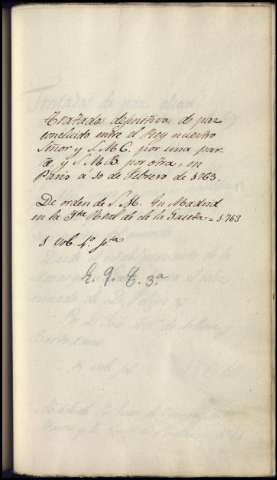 Tratado definitivo de paz
concluido entre el Rey nuestro
Señor y S. M. C. por una par
te, y S. M. B. por otra, en
Paris a 10 de febrero de 1763.
De orden de S. M. En Madrid
en la Ymp. Real de la Gaceta = 1763
1 vol. 4º pta
E. 9. C. 3.ª